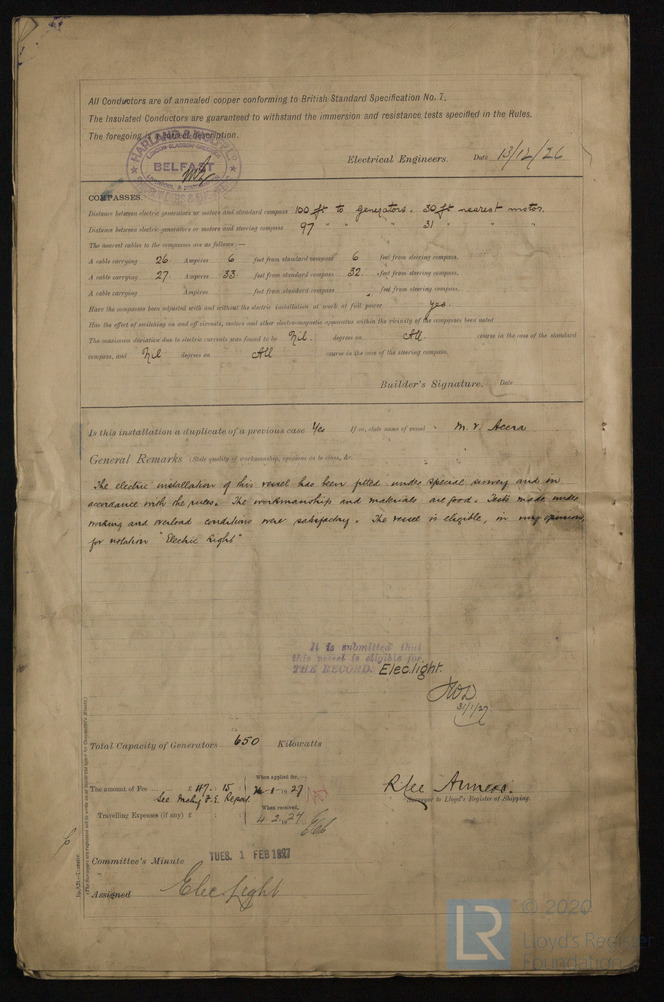 All Conductors are of annealed copper conforming to British Standard Specification No. 7.
The Insulated Conductors are guaranteed to withstand the immersion and resistance tests specified in the Rules.
The foregoing is a correct description.
HARLAND &
BELFAST
Electrical Engineers. Date 13/12/26
COMPASSES.
Distance between electric generators or motors and standard compass 100 ft to generators. 30 ft nearest motor.
Distance between electric generators or motors and steering compass 97 " " " 31 " " "
The nearest cables to the compasses are as follows:—
A cable carrying 26 Amperes 6 feet from standard compass 6 feet from steering compass.
A cable carrying 27 Amperes 33 feet from standard compass 32 feet from steering compass.
A cable carrying Amperes feet from standard compass feet from steering compass.
Have the compasses been adjusted with and without the electric installation at work at full power yes.
Has the effect of switching on and off circuits, motors and other electro-magnetic apparatus within the vicinity of the compasses been noted
The maximum deviation due to electric currents was found to be Nil. degrees on All course in the case of the standard
compass, and Nil degrees on All course in the case of the steering compass.
Builder's Signature. Date
Is this installation a duplicate of a previous case Yes If so, state name of vessel M.V. Accra
General Remarks (State quality of workmanship, opinions as to class, &c.
The electric installation of this vessel has been fitted under special survey and in
accordance with the rules. The workmanship and materials are good. Tests made under
working and overload conditions were satisfactory. The vessel is eligible, in my opinion,
for notation "Electric Light"
It is submitted that
this vessel is eligible for
THE RECORD. Elec. light.
31/1/27
Total Capacity of Generators 650 Kilowatts
The amount of Fee £ 47 : 15 : When applied for, 1927
See Mchy F.E. Report
Travelling Expenses (if any) £ When received, 4.2.27
Surveyor to Lloyd's Register of Shipping.
Committee's Minute TUES. 1 FEB 1927
Assigned Elec Light
LR © 2020
Lloyd's Register
Foundation